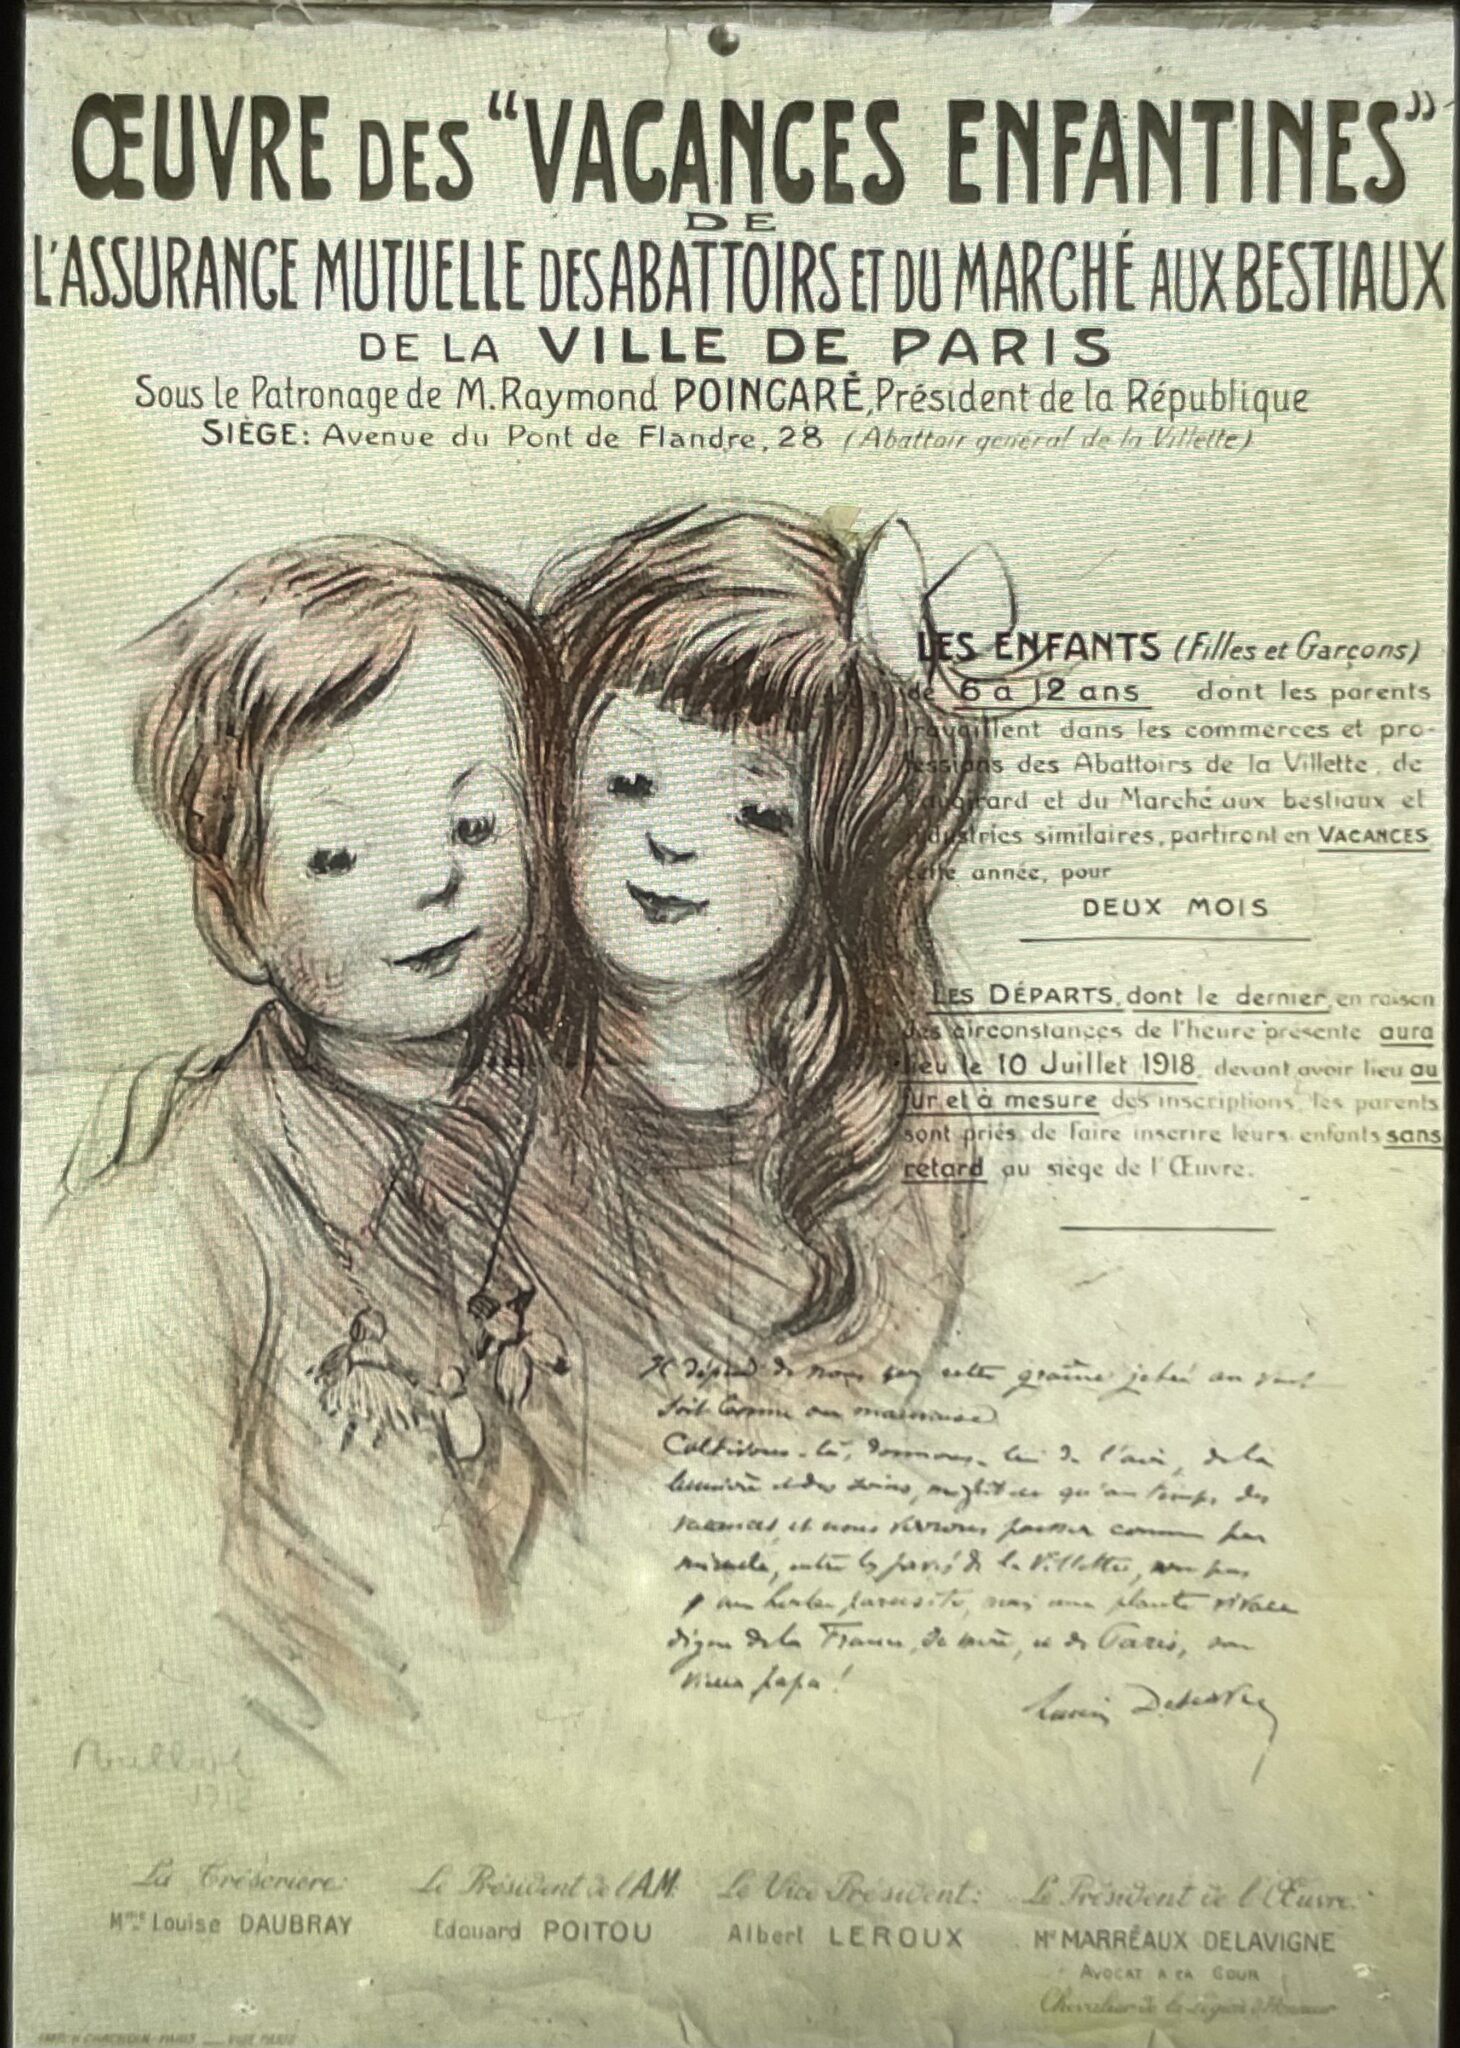 ŒUVRE DES "VACANCES ENFANTINES"
DE
L'ASSURANCE MUTUELLE DES ABATTOIRS ET DU MARCHÉ AUX BESTIAUX
DE LA VILLE DE PARIS
Sous le Patronage de M. Raymond POINCARÉ, Président de la République
SIÈGE: Avenue du Pont de Flandre, 28 (Abattoir général de la Villette)
LES ENFANTS (Filles et Garçons)
de 6 à 12 ans dont les parents
travaillent dans les commerces et pro-
fessions des Abattoirs de la Villette, de
Vaugirard et du Marché aux bestiaux et
industries similaires, partiront en VACANCES
cette année, pour
DEUX MOIS
LES DÉPARTS, dont le dernier, en raison
des circonstances de l'heure présente aura
lieu le 10 Juillet 1918, devant avoir lieu au
fur et à mesure des inscriptions, les parents
sont priés de faire inscrire leurs enfants sans
retard au siège de l'Œuvre.
Il dépend de nous que cette graine jetée au vent
soit bonne ou mauvaise.
Cultivons-la, donnons-lui de l'air, de la
lumière et des soins, ne fût-ce qu'au temps des
vacances, et nous verrons pousser comme par
miracle, entre les pavés de la Villette, non pas
une herbe parasite, mais une plante vivace
digne de la France, sa mère, et de Paris, son
vieux papa!
Lucien Descaves
Poulbot
La Trésorière:
Mme Louise DAUBRAY
Le Président de l'A.M.
Edouard POITOU
Le Vice Président:
Albert LEROUX
Le Président de l'Œuvre:
Me MARRÉAUX DELAVIGNE
AVOCAT A LA COUR
Chevalier de la Légion d'Honneur